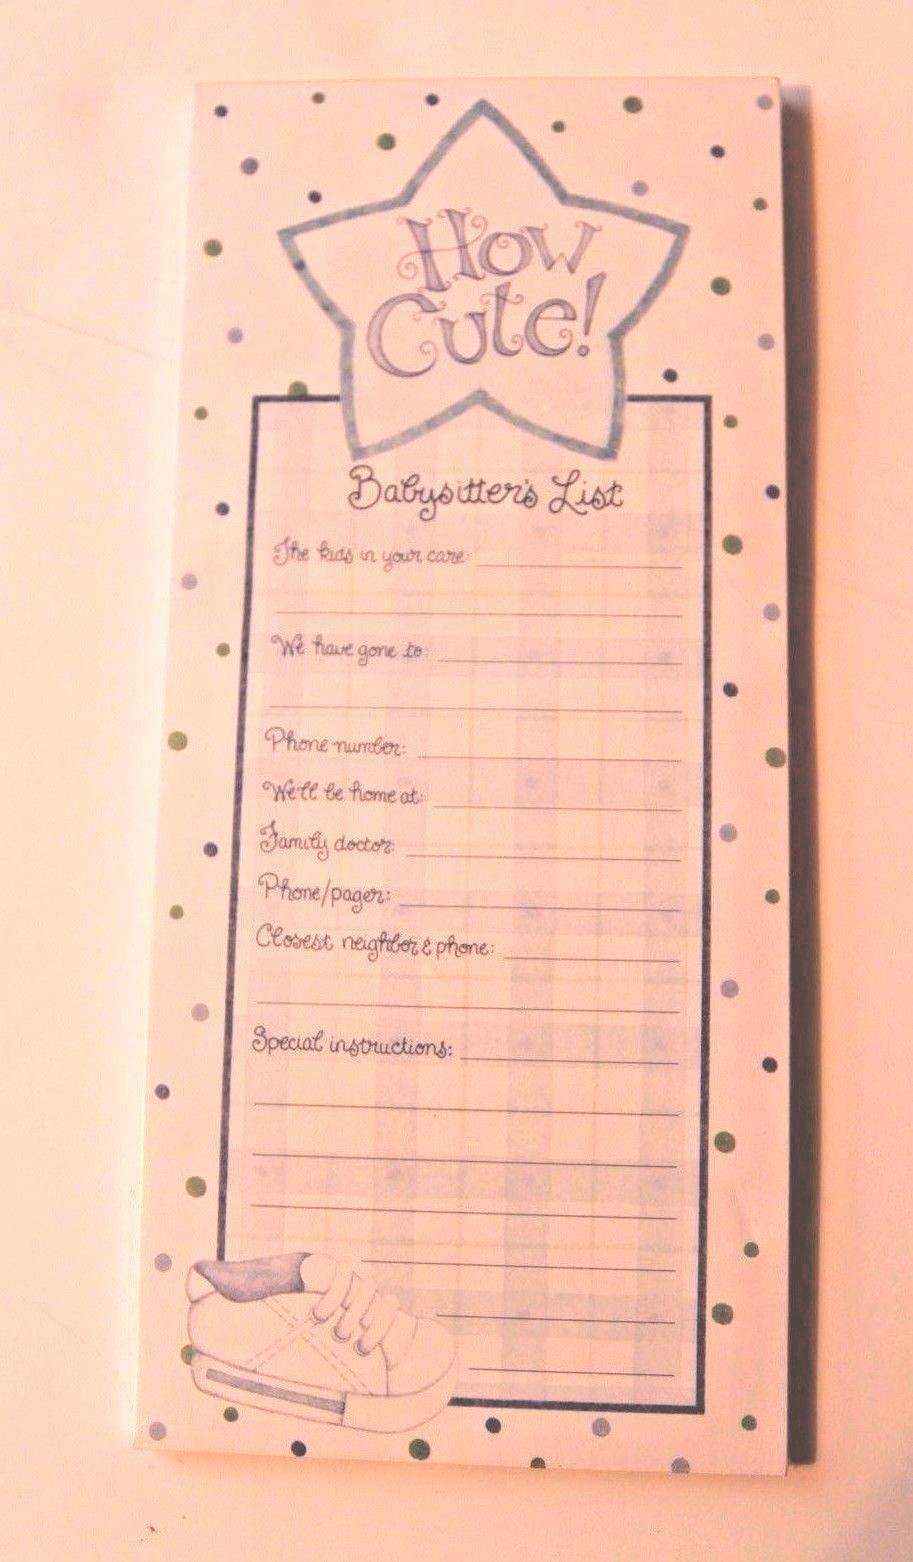 How
Cute!
Babysitter's List
The kids in your care:
We have gone to:
Phone number:
We'll be home at:
Family doctor:
Phone/pager:
Closest neighbor & phone:
Special instructions: